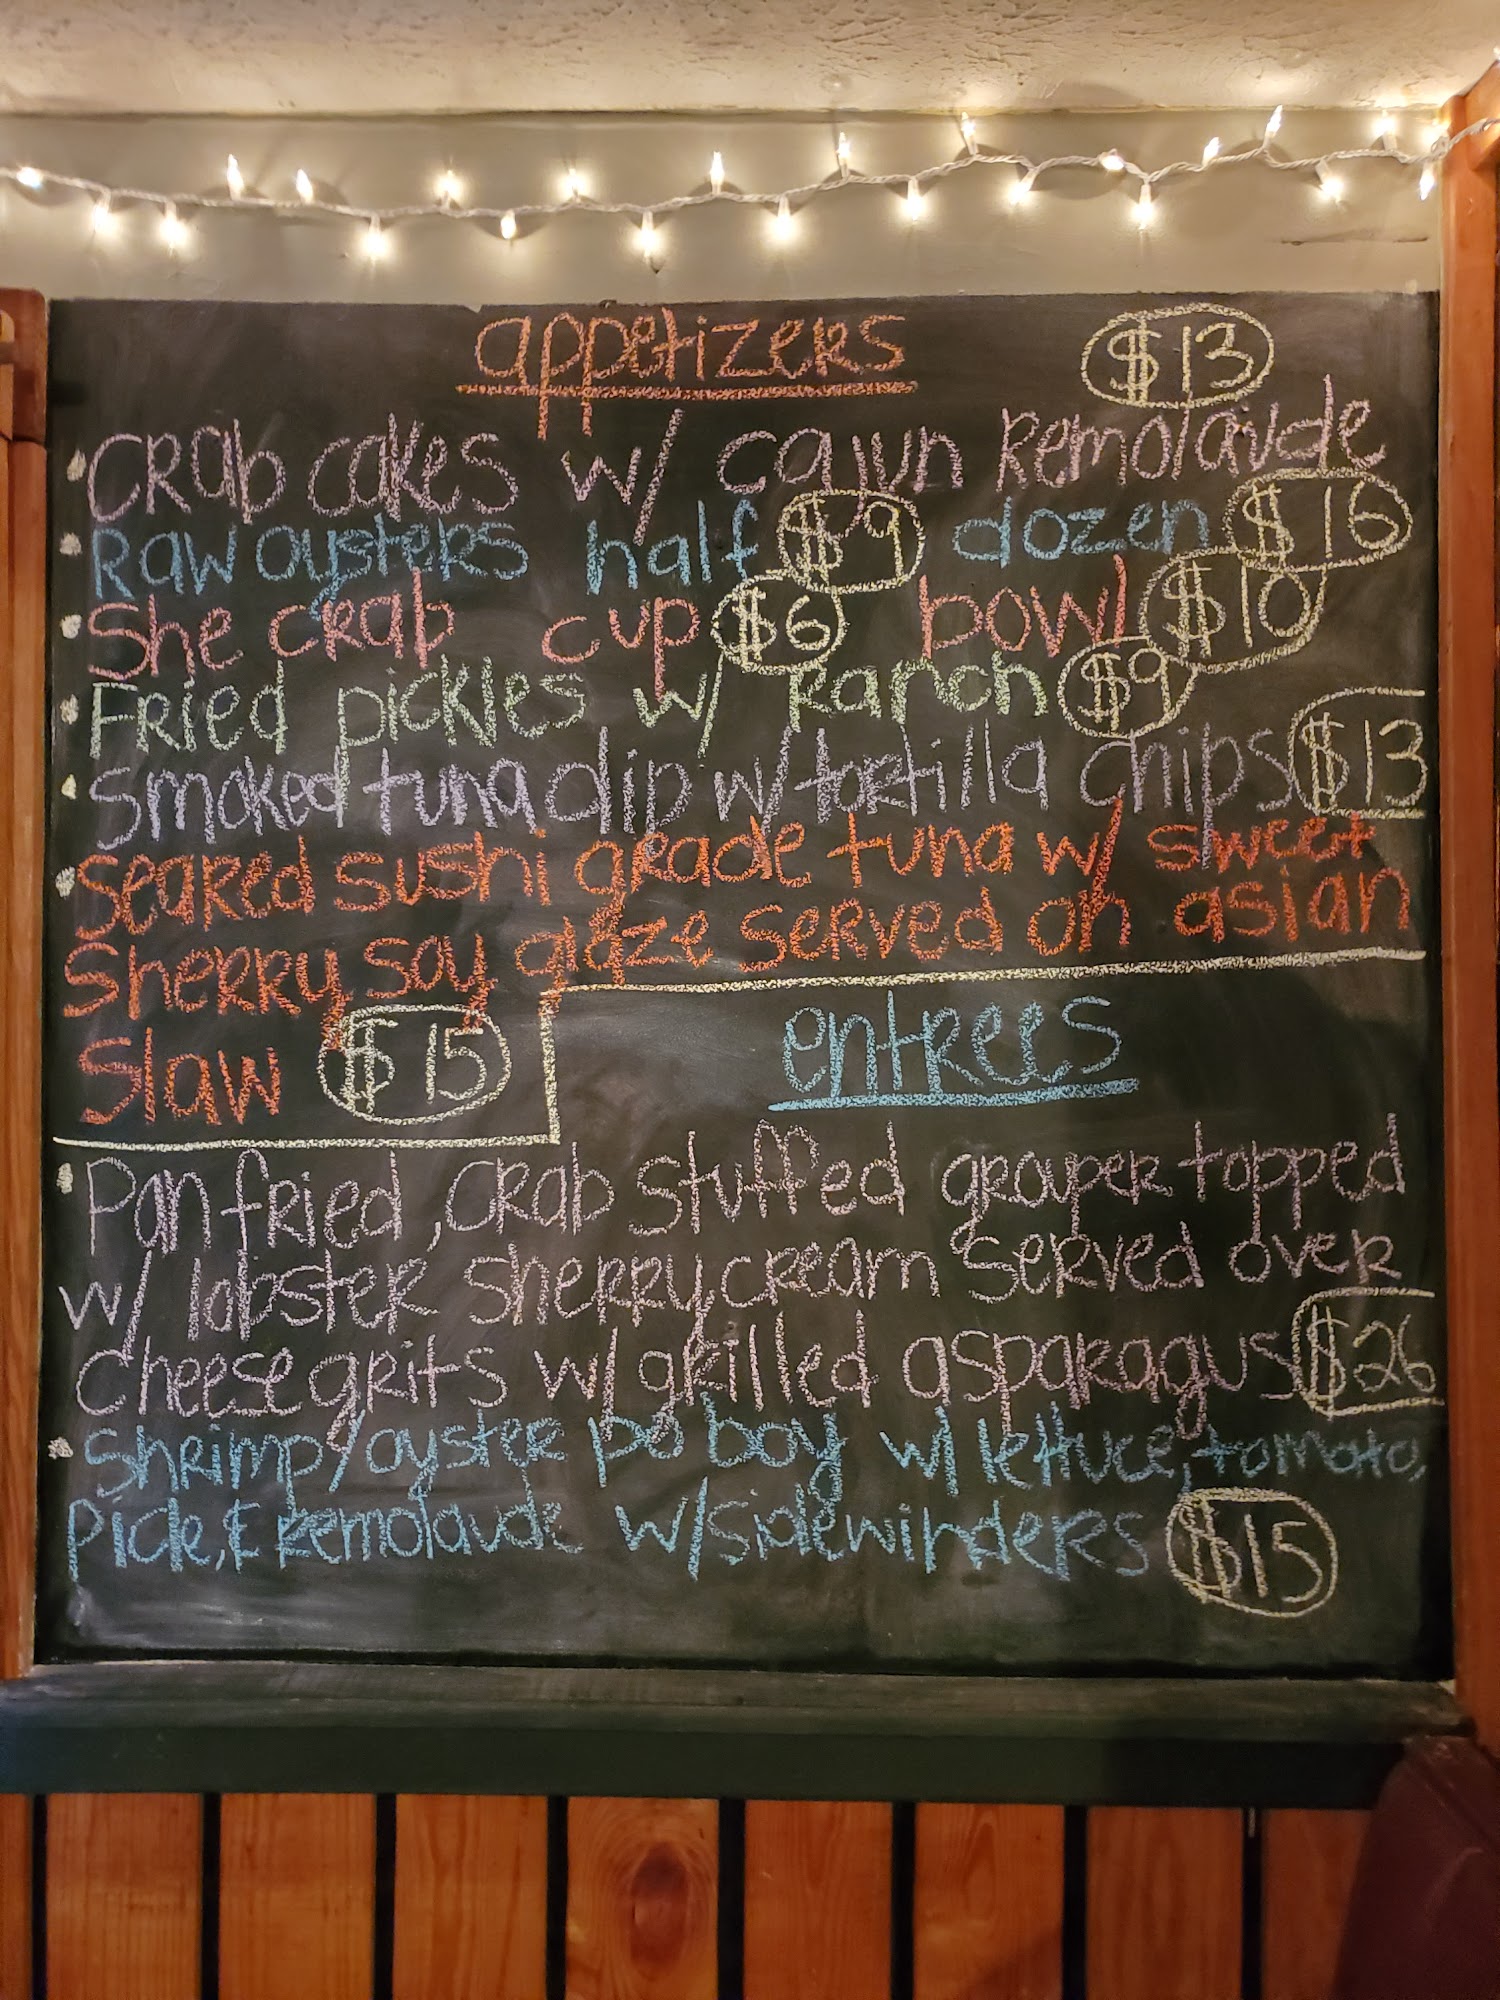 appetizers $13
Crab cakes w/ cajun Remolaude
Raw oysters half $9 dozen $16
She crab cup $6 bowl $10
Fried pickles w/ Ranch $9
Smoked tuna dip w/ tortilla chips $13
Seared sushi grade tuna w/ sweet
Sherry soy glaze served on asian
Slaw $15
entrees
Pan fried, crab stuffed grouper topped
w/ lobster sherry cream served over
Cheese grits w/ grilled asparagus $26
Shrimp/oyster po boy w/ lettuce, tomato,
Pickle, & Remolaude w/ sidewinders $15